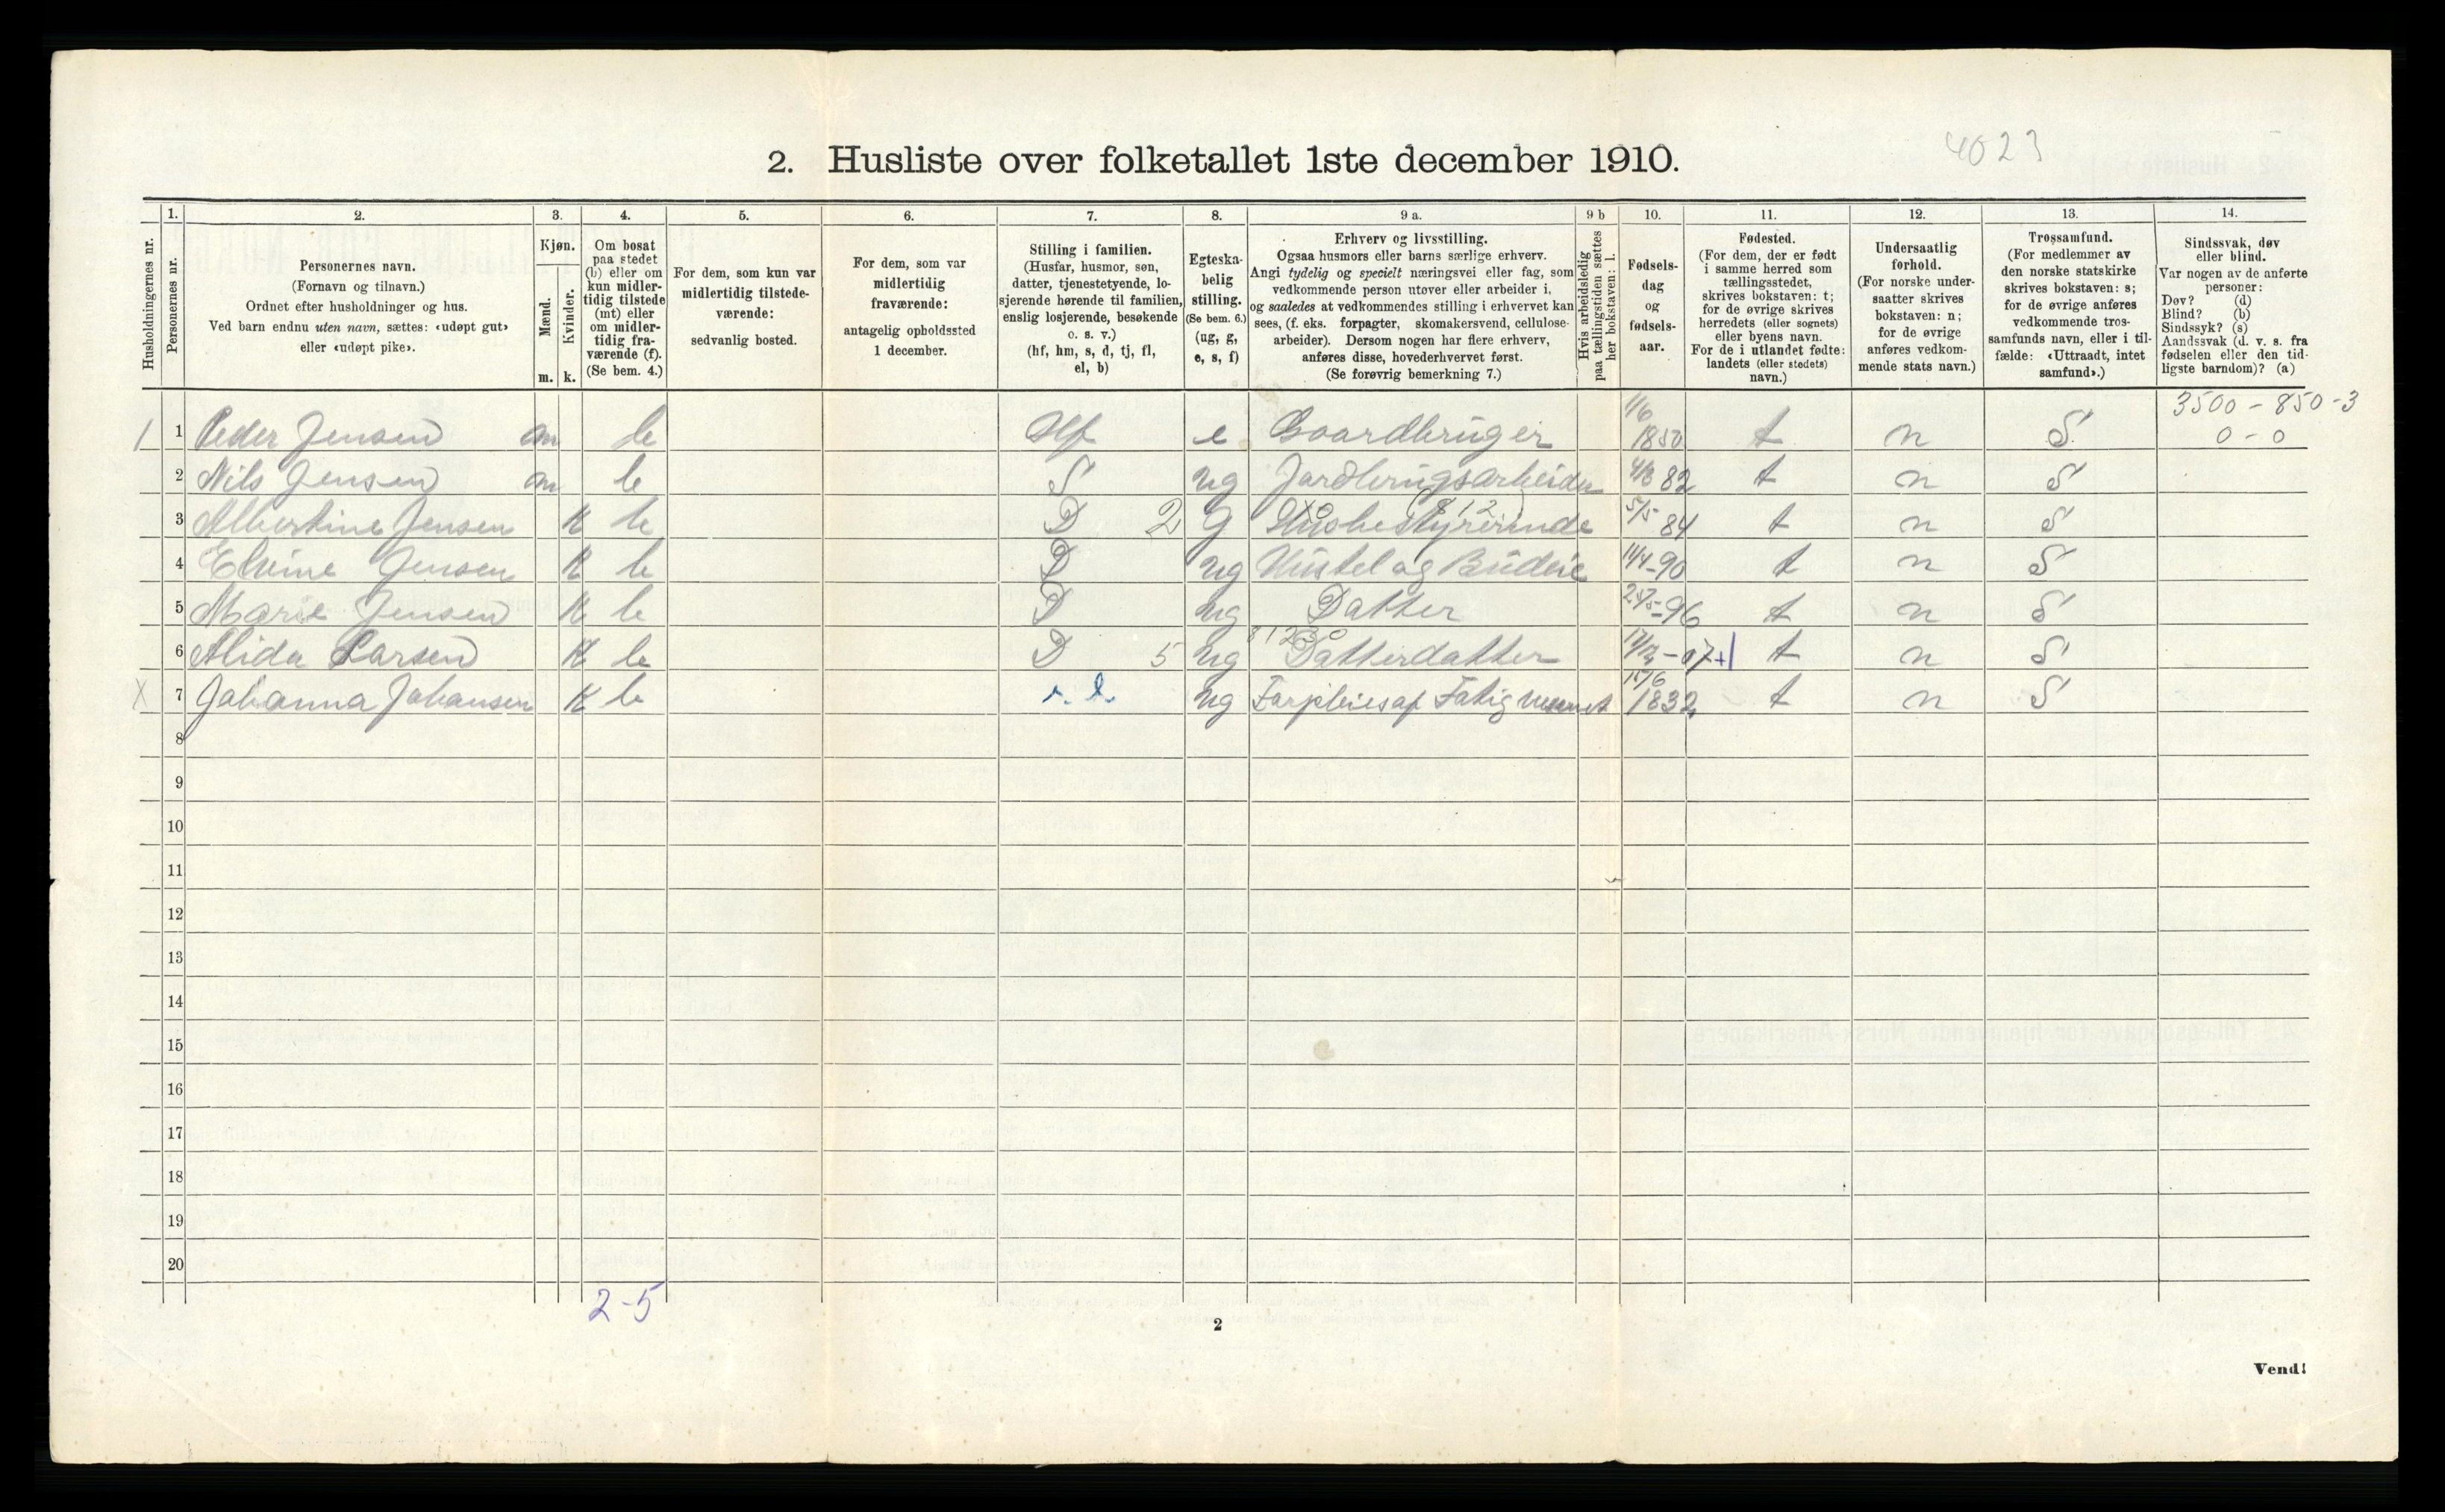 4023
2. Husliste over folketallet 1ste december 1910.
Husholdningernes nr.
1.
Personernes nr.
2.
Personernes navn.
(Fornavn og tilnavn.)
Ordnet efter husholdninger og hus.
Ved barn endnu uten navn, sættes: «udøpt gut»
eller «udøpt pike».
3.
Kjøn.
Mænd.
Kvinder.
m. k.
4.
Om bosat
paa stedet
(b) eller om
kun midler-
tidig tilstede
(mt) eller
om midler-
tidig fra-
værende (f).
(Se bem. 4.)
5.
For dem, som kun var
midlertidig tilstede-
værende:
sedvanlig bosted.
6.
For dem, som var
midlertidig
fraværende:
antagelig opholdssted
1 december.
7.
Stilling i familien.
(Husfar, husmor, søn,
datter, tjenestetyende, lo-
sjerende hørende til familien,
enslig losjerende, besøkende
o. s. v.)
(hf, hm, s, d, tj, fl,
el, b)
8.
Egteska-
belig
stilling.
(Se bem. 6.)
(ug, g,
e, s, f)
9 a.
Erhverv og livsstilling.
Ogsaa husmors eller barns særlige erhverv.
Angi tydelig og specielt næringsvei eller fag, som
vedkommende person utøver eller arbeider i,
og saaledes at vedkommendes stilling i erhvervet kan
sees, (f. eks. forpagter, skomakersvend, cellulose-
arbeider). Dersom nogen har flere erhverv,
anføres disse, hovederhvervet først.
(Se forøvrig bemerkning 7.)
9 b
Hvis arbeidsledig
paa tællingstiden sættes
her bokstaven: l.
10.
Fødsels-
dag
og
fødsels-
aar.
11.
Fødested.
(For dem, der er født
i samme herred som
tællingsstedet,
skrives bokstaven: t;
for de øvrige skrives
herredets (eller sognets)
eller byens navn.
For de i utlandet fødte:
landets (eller stedets)
navn.)
12.
Undersaatlig
forhold.
(For norske under-
saatter skrives
bokstaven: n;
for de øvrige
anføres vedkom-
mende stats navn.)
13.
Trossamfund.
(For medlemmer av
den norske statskirke
skrives bokstaven: s;
for de øvrige anføres
vedkommende tros-
samfunds navn, eller i til-
fælde: «Uttraadt, intet
samfund».)
14.
Sindssvak, døv
eller blind.
Var nogen av de anførte
personer:
Døv? (d)
Blind? (b)
Sindssyk? (s)
Aandssvak (d. v. s. fra
fødselen eller den tid-
ligste barndom)? (a)
3500 - 850 - 3
0 - 0
1 1 Peder Jensen m b Hf e Gaardbruger 1/6 1850 t n S
2 Nils Jensen m b S ug Jordbrugsarbeider 82 t n S
3 Albertine Jensen K b D 2 G Husbestyrerinde 5/5 84 t n S
4 Elvine Jensen K b D ug Hustel og Budeie 11/4-90 t n S
5 Marie Jensen K b D ug Datter -96 t n S
6 Alida Larsen K b D 5 ug Datterdatter -07 +1 t n S
X 7 Johanna Johansen K b ug Forpleies af Fatigvæsenet 15/6 1832 t n S
8
9
10
11
12
13
14
15
16
17
18
19
20
2-5
2
Vend!